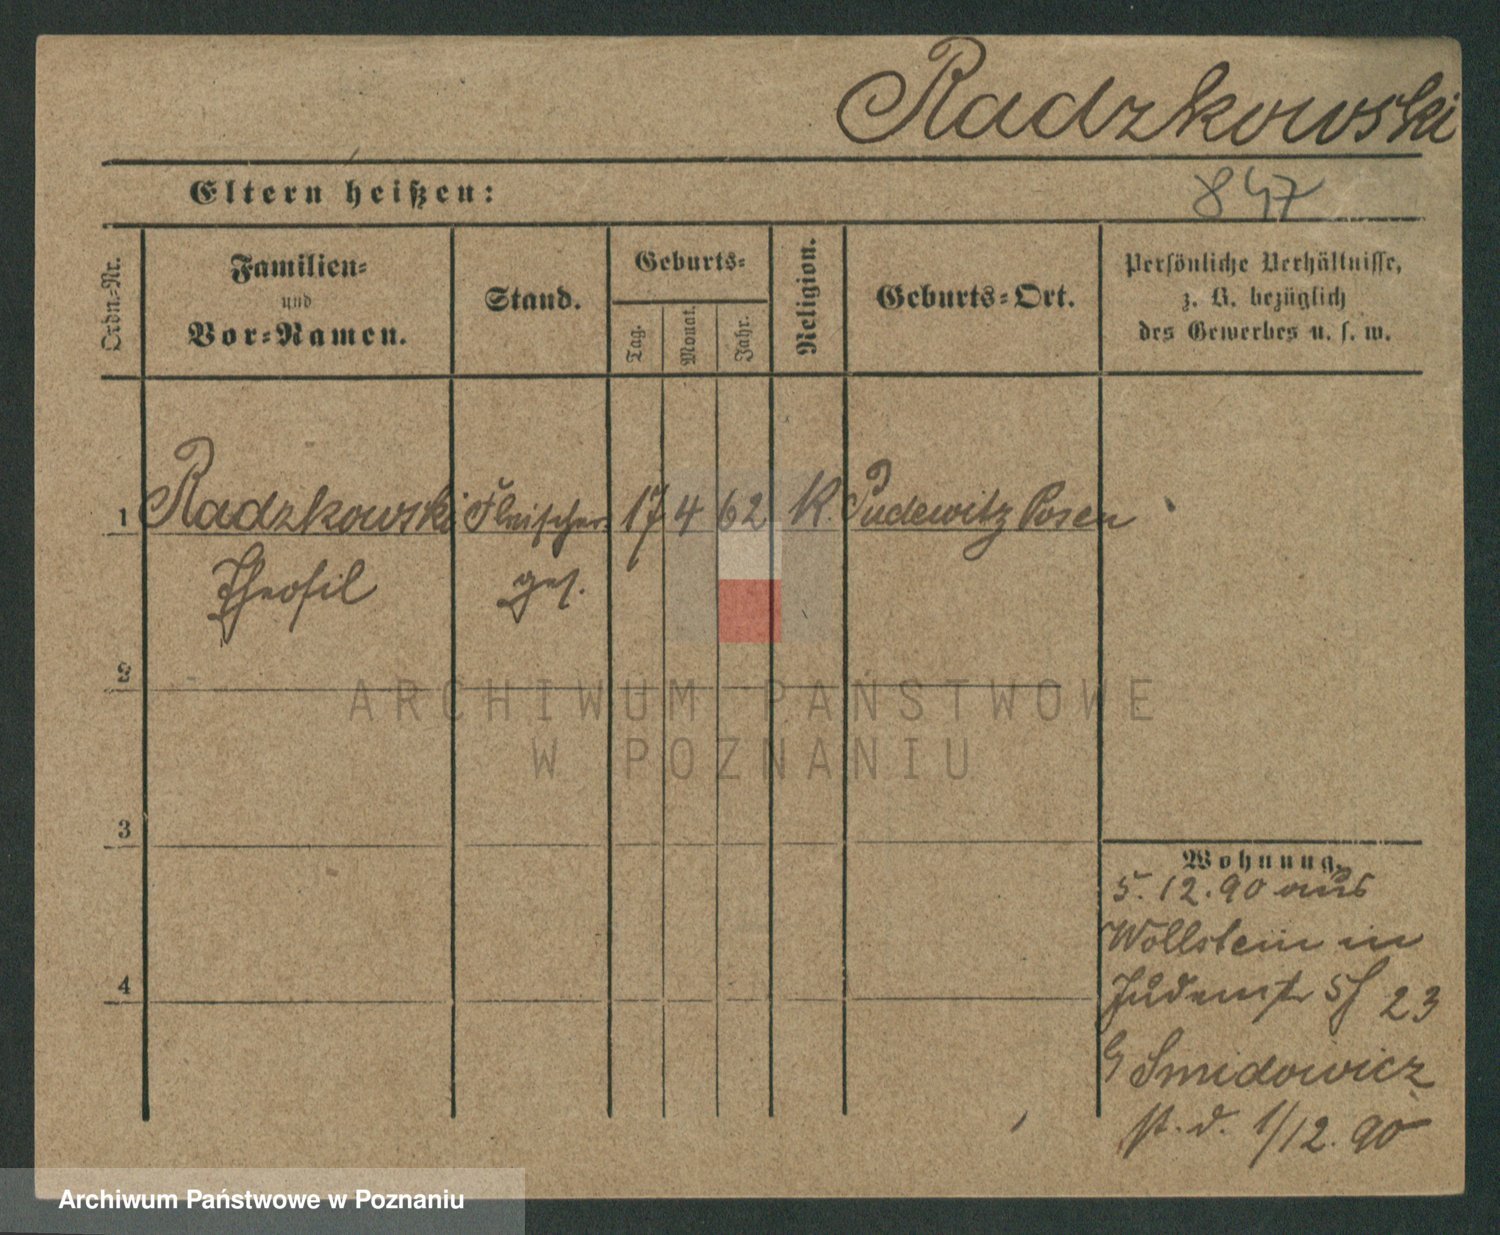 Radzkowski
Eltern heißen:
847
Ordn.-Nr.
Familien-
und
Vor-Namen.
Stand.
Geburts-
Tag.
Monat.
Jahr.
Religion.
Geburts-Ort.
Persönliche Verhältnisse,
z. B. bezüglich
des Gewerbes u. s. w.
1 Radzkowski Fleischer 17 4 62 K. Pudewitz Posen
Theofil ges.
2
ARCHIWUM PAŃSTWOWE
W POZNANIU
3
Wohnung.
5.12.90 aus
Wollstein in
4
Judenstr 23
Smidowicz
st. d. 1/12. 90
Archiwum Państwowe w Poznaniu